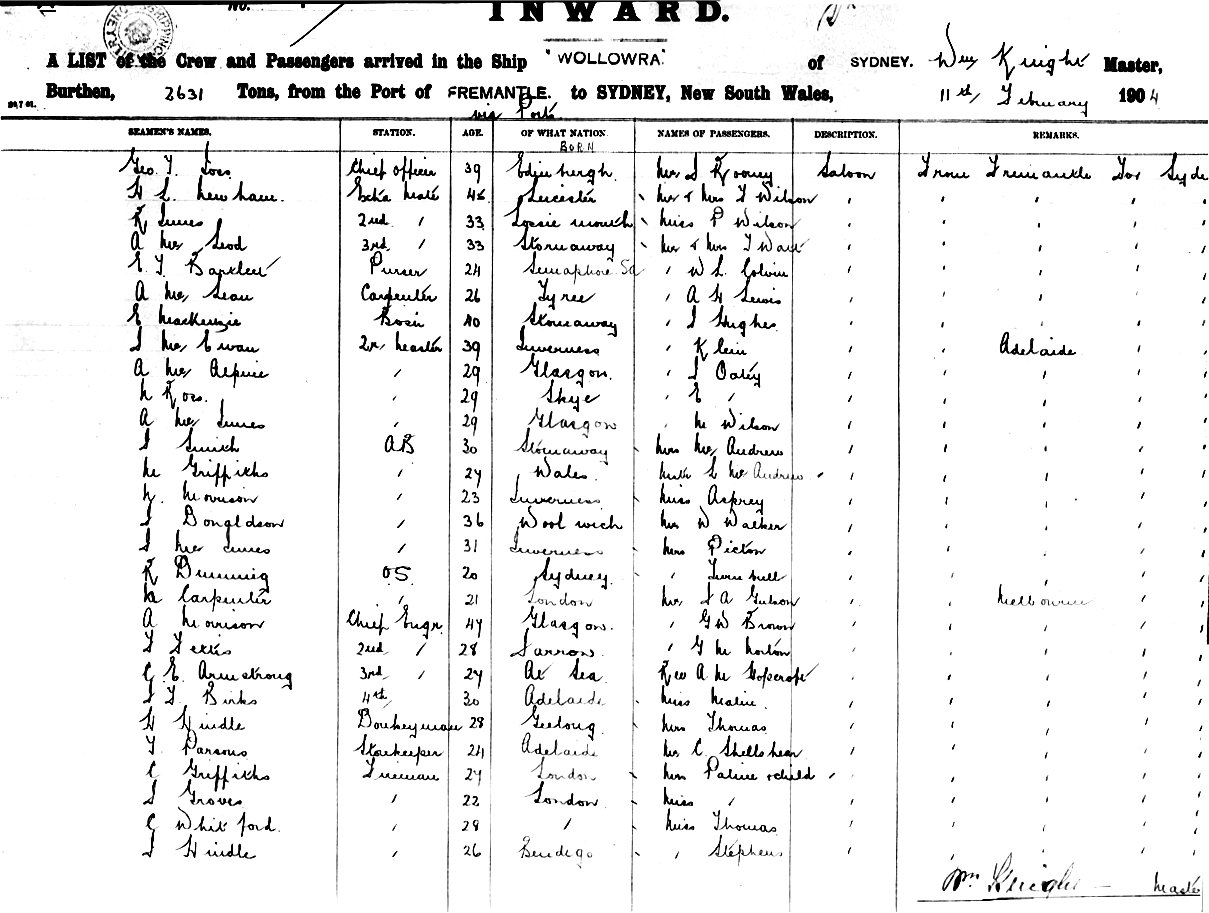 No.
INWARD.
A LIST of the Crew and Passengers arrived in the Ship "WOLLOWRA" of SYDNEY. Wm Knight Master,
Burthen, 2631 Tons, from the Port of FREMANTLE. to SYDNEY, New South Wales, 11th February 1904
via Ports
SEAMEN'S NAMES. STATION. AGE. OF WHAT NATION. NAMES OF PASSENGERS. DESCRIPTION. REMARKS.
BORN
Geo. T. Chief officer 39 Edinburgh Saloon From Fremantle For Syd
Newham Extra Mate Leicester Mr & Mrs Wilson
Innes 2nd " 33 Lossie mouth Miss P Wilson
A Mc Leod 3rd " 33 Stornaway Mr & Mrs
Purser 24 Semaphore SA " W
A Mc Lean Carpenter 26 Tyree " A H Lewis
E Mackenzie Bosn 40 Stornaway " Hughes
Mc Ewan Qr Master 39 Inverness " Klein " Adelaide "
A Mc Alpine " 29 Glasgow. " Oatey
N Ross. " 29 Skye " E "
A Mc Innes " 29 Glasgow " M Wilson
Smith AB 30 Stornaway Mrs Mc Andrew
M Griffiths " 27 Wales. Mastr Mc Andrew
N. Morrison " 23 Inverness Miss Asprey
Donaldson " 36 Wool wich Mr W Walker
Mc Innes " 31 Inverness Mrs Picton
OS 20 Sydney. " Turnbull
Carpenter " 21 London Mr A " Melbourne "
A Morrison Chief Engr. 47 Glasgow. " G W Brown
2nd " 28 Jarrow. " G M Norton
C E. Armstrong 3rd " 27 At Sea Rev A M
Birks 4th 30 Adelaide Miss
H Hindle Donkeyman 28 Geelong. Mrs Thomas
T. Parsons Storekeeper 24 Adelaide Mr C. Shellshear
C Griffiths Fireman 27 London Mrs Palmer & child
Groves " 22 London Miss "
C Whitford. " 28 " Miss Thomas
Hindle " 26 Bendigo " Stephens
Wm Knight Master